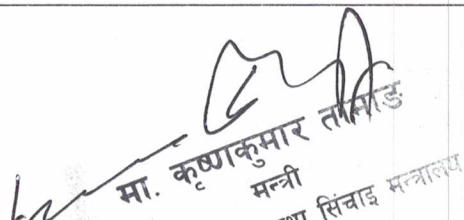 मा. कृष्णकुमार तामाङ
मन्त्री
सिंचाइ मन्त्रालय